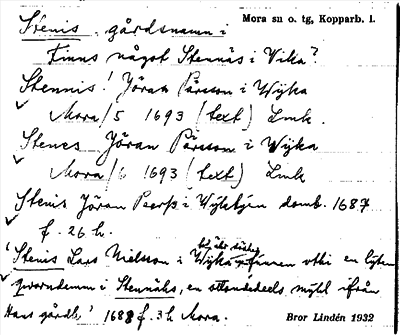 Stenis gårdsnamn i
Mora sn o. tg, Kopparb. l.
Finns något Stennäs i Wika?
Stennis! Jöran Pärsson i Wijka
Mora/5 1693 (text) Lmk.
Stenes Jöran Pärsson i Wijka
Mora/6 1693 (text) Lmk
Stenis Jöran Peerß i domb. 1687
f. 26 h.
'Stenis Lars Nielsson i Wijka finnen uthi en lijten
qvarndamm i Stennähs, en ifrån
Hans gårdh' 1688 f. 3 h Mora.
Bror Lindén 1932